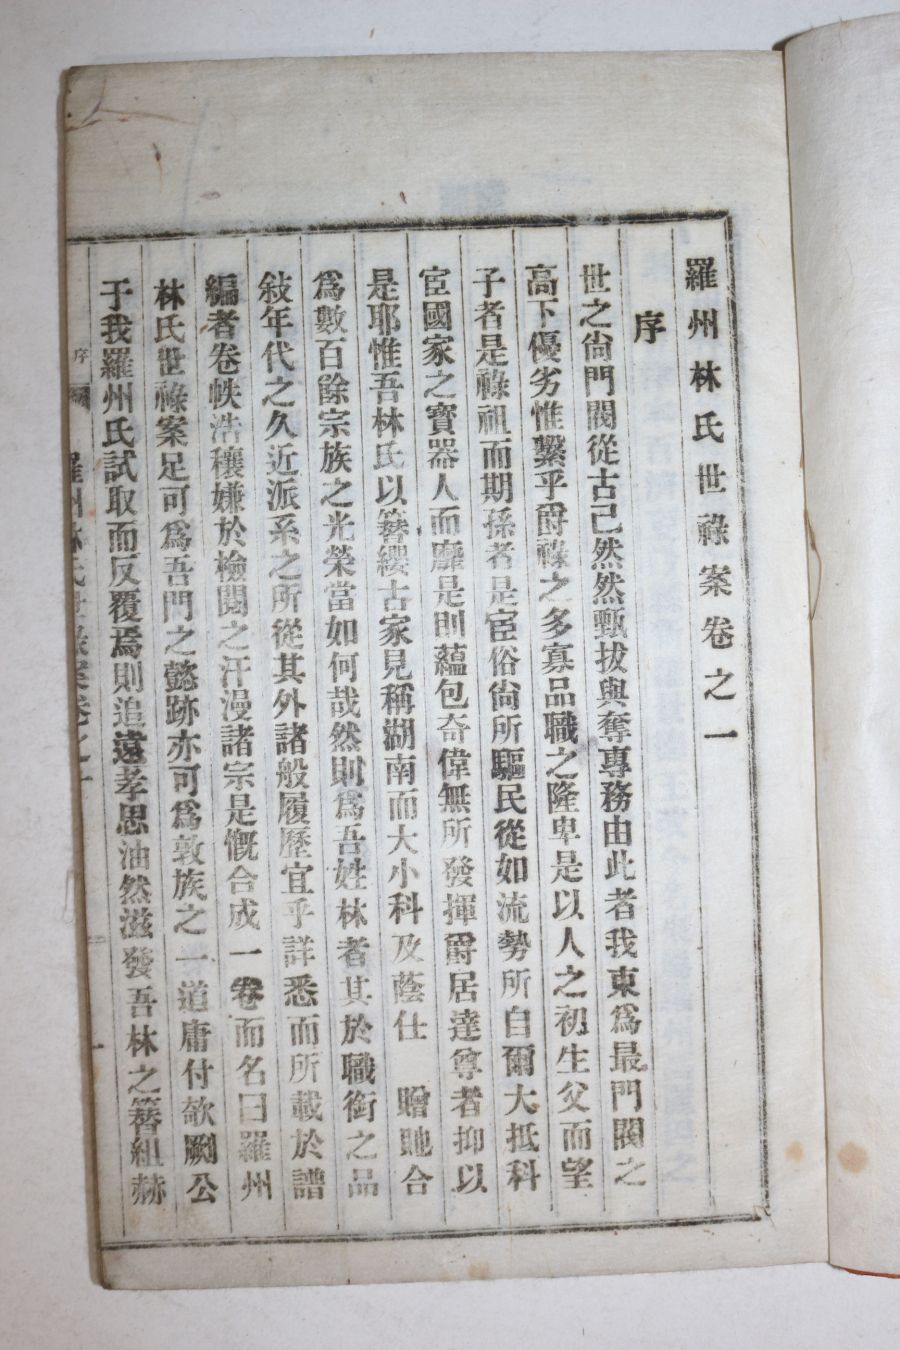 羅州林氏世祿案卷之一
序
世之尙門閥從古已然然甄拔與奪專務由此者我東爲最門閥之
高下優劣惟繫乎爵祿之多寡品職之隆卑是以人之初生父而望
子者是祿祖而期孫者是宦俗尙所驅民從如流勢所自爾大抵科
宦國家之寶器人而靡是則蘊包奇偉無所發揮爵居達尊者抑以
是耶惟吾林氏以簪纓古家見稱湖南而大小科及蔭仕 贈貤合
爲數百餘宗族之光榮當如何哉然則爲吾姓林者其於職銜之品
敍年代之久近派系之所從其外諸般履歷宜乎詳悉而所載於譜
編者卷帙浩穰嫌於檢閱之汗漫諸宗是慨合成一卷而名曰羅州
林氏世祿案足可爲吾門之懿跡亦可爲敦族之一道庸付欹劂公
于我羅州氏試取而反覆焉則追遠孝思油然滋發吾林之簪組赫
序
羅州林氏世祿案卷之一
一